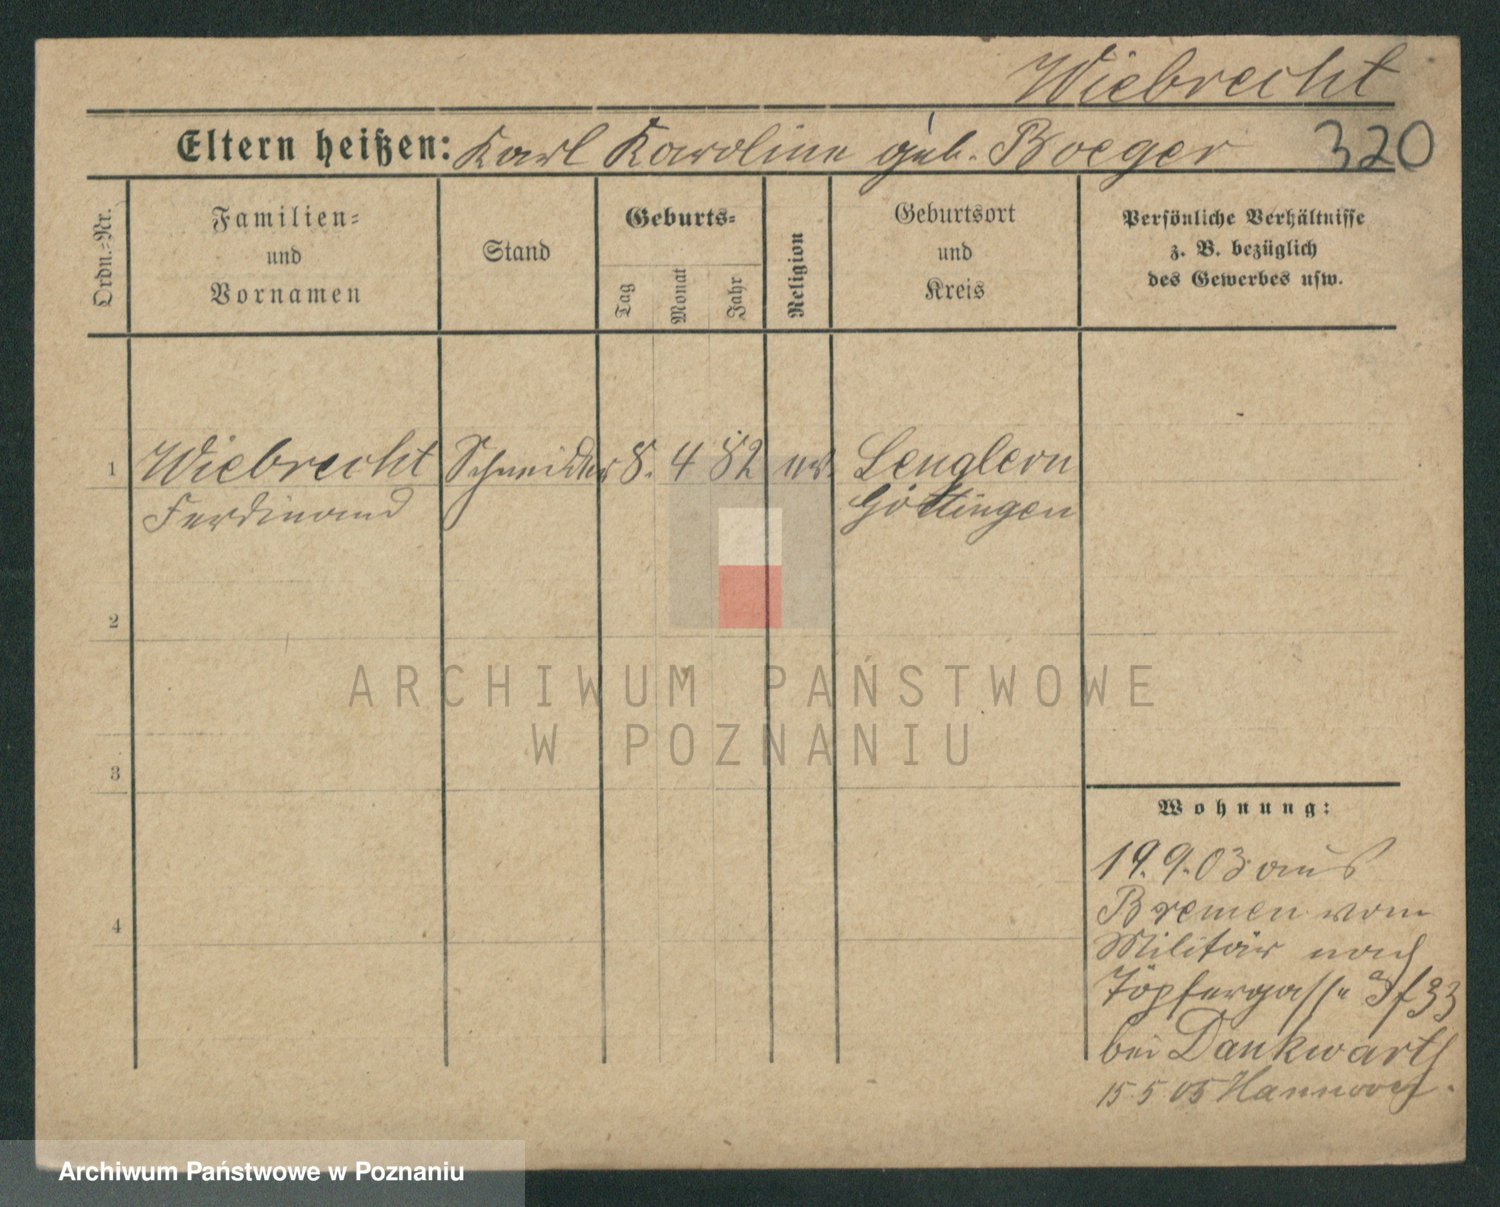 Wiebrecht
Eltern heißen: Karl Karoline geb. Boeger 320
Ordn.-Nr.
Familien-
und
Vornamen
Stand
Geburts-
Tag
Monat
Jahr
Religion
Geburtsort
und
Kreis
Persönliche Verhältnisse
z. B. bezüglich
des Gewerbes usw.
1 Wiebrecht Schneider 8. 4 82 ev. Lenglern
Ferdinand Göttingen
2
3
4
Wohnung:
19.9.03 aus
Bremen vom
Militär nach
Töpfergasse 33
bei Dankwarth
15.5.05 Hannover.
ARCHIWUM PAŃSTWOWE
W POZNANIU
Archiwum Państwowe w Poznaniu